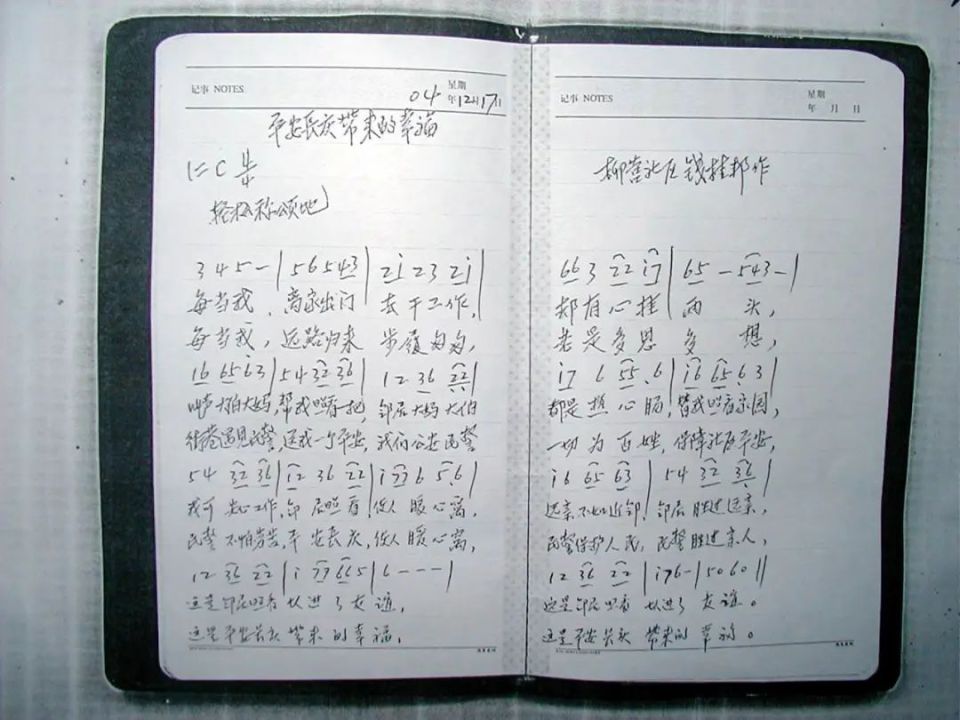 记事 NOTES
星期
04年12月17日
平安长庆带来的幸福
1=C 4/4
轻松称颂地
3 4 5 - | 5 6 5 4 3 | 2 i 2 3 2 i |
每当我，离家出门 去干工作，
每当我，远路归来 步履匆匆，
1 6 6 5 6 3 | 5 4 3 2 3 6 | 1 2 3 6 2 2 |
大伯大妈，帮我照看一把，邻居大妈大伯
街巷遇见民警，送我一个平安，我们公安民警
5 4 3 2 3 6 | i 2 3 6 2 2 | i 7 7 6 5 6 |
我可 安心工作，邻居照看 使人暖心窝，
民警不怕劳苦，平安长庆，使人暖心窝，
1 2 3 6 2 2 | i 7 7 6 6 5 | 6 - - - |
这是邻居照看 以进了友谊，
这是平安长庆 带来的幸福，
记事 NOTES
星期
年 月 日
柳营社区 钱桂邦作
6 6 3 2 2 i 7 | 6 5 - 5 4 3 - |
却有心挂 两 头，
老是多思 多 想，
i 7 6 5 5 . 6 | i 6 6 5 6 3 |
都是热心肠，替我照看家园，
一切为百姓，保障社区平安，
i 6 6 5 6 3 | 5 4 3 2 3 6 |
远亲不如近邻，邻居胜过远亲，
民警保护人民，民警胜过亲人，
1 2 3 6 2 2 | i 7 6 - | 5 0 6 0 ||
这是邻居照看 以进了友谊。
这是平安长庆 带来的幸福。